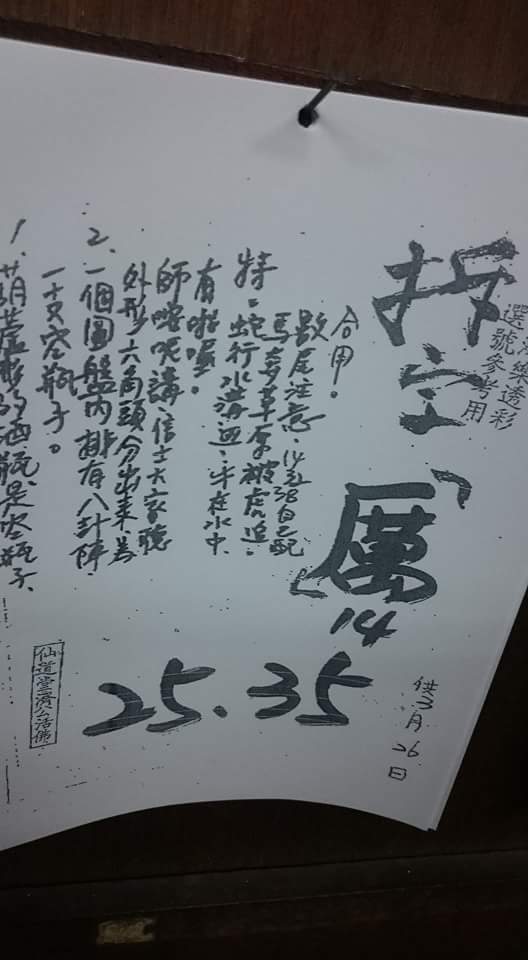 樂透彩
選號參考用
拆字「厲」
14
25.35
供3月26日
1、葫蘆形的酒瓶是空瓶子、
一支空瓶子。
2、一個圓盤內排有八卦陣、
外形六角頭分出來、為
師唸呢講、信士大家聽
有啦喔。
特、蛇行水溝邊、牛在水中
馬奔草原被虎追.
尾注意、14到38自己配
合用。
仙道堂濟公活佛